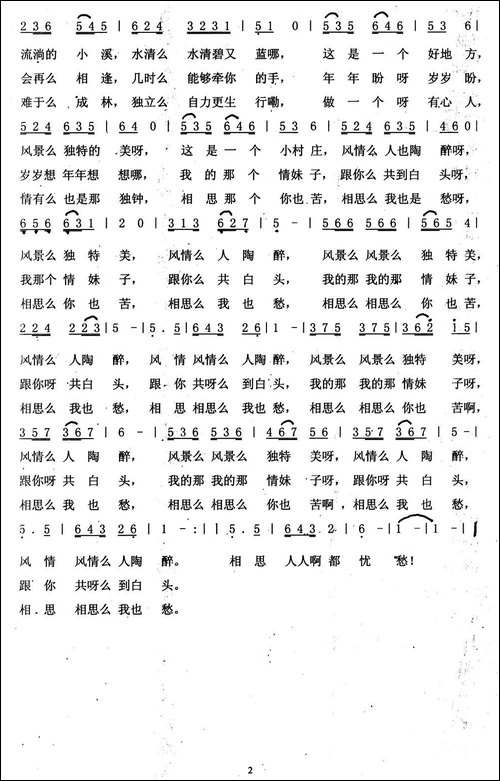 2 3 6 | 5 4 5 | 6 2 4 | 3 2 3 1 | 5 1 0 | 5 3 5 | 6 4 6 | 5 3 6 |
流淌的 小 溪，水清么 水清碧又 蓝哪， 这 是 一 个 好地 方，
会再么 相 逢，几时么 能够牵你 的手， 年 年 盼 呀 岁岁 盼，
难于么 成 林，独立么 自力更生 行嘞， 做 一 个 呀 有心 人，
5 2 4 | 6 3 5 | 6 4 0 | 5 3 5 | 6 4 6 | 5 3 6 | 5 2 4 | 6 3 5 | 4 6 0 |
风景么 独特的 美呀， 这 是 一 个 小村 庄，风情么 人也陶 醉呀，
岁岁想 年年想 想哪， 我 的 那 个 情妹 子，跟你么 共到白 头呀，
情有么 也是那 独钟， 相 思 那 个 你也 苦，相思么 我也是 愁呀，
6 5 6 | 6 3 1 | 2 0 | 3 1 3 | 6 2 7 | 5 - | 5 6 6 | 5 6 6 | 5 6 5 4 |
风景么 独 特 美， 风情么 人 陶 醉， 风景么 风景么 独特 美，
我那个 情 妹 子， 跟你么 共 白 头， 我的那 我的那 情妹 子，
相思么 你 也 苦， 相思么 我 也 愁， 相思么 相思么 你也 苦，
2 2 4 | 2 2 3 | 5 - | 5. 5 | 6 4 3 | 2 6 0 | 1 - | 3 7 5 | 3 7 5 | 3 6 2 | 1 5 |
风情么 人陶 醉， 风 情 风情么 人陶 醉， 风景么 风景么 独特 美呀，
跟你呀 共白 头， 跟 你 共呀么 到白 头， 我的那 我的那 情妹 子呀，
相思么 我也 愁， 相 思 相思么 我也 愁， 相思么 相思么 你也 苦啊，
3 5 7 | 3 6 7 | 6 - | 5 3 6 | 5 3 6 | 4 6 7 | 5 6 | 3 5 7 | 3 6 7 | 5 - |
风情么 人 陶 醉， 风景么 风景么 独特 美呀， 风情么 人 陶 醉，
跟你呀 共 白 头， 我的那 我的那 情妹 子呀， 跟你呀 共 白 头，
相思么 我 也 愁， 相思么 相思么 你也 苦啊， 相思么 我 也 愁，
5. 5 | 6 4 3 2 6 | 1 - :| | 5. 5 | 6 4 3 2 | 2 6 | 1 - | 1 - |
风 情 风情么 人陶 醉。 相 思 人人啊 都 忧 愁！
跟 你 共呀么 到白 头。
相. 思 相思么 我也 愁。
2